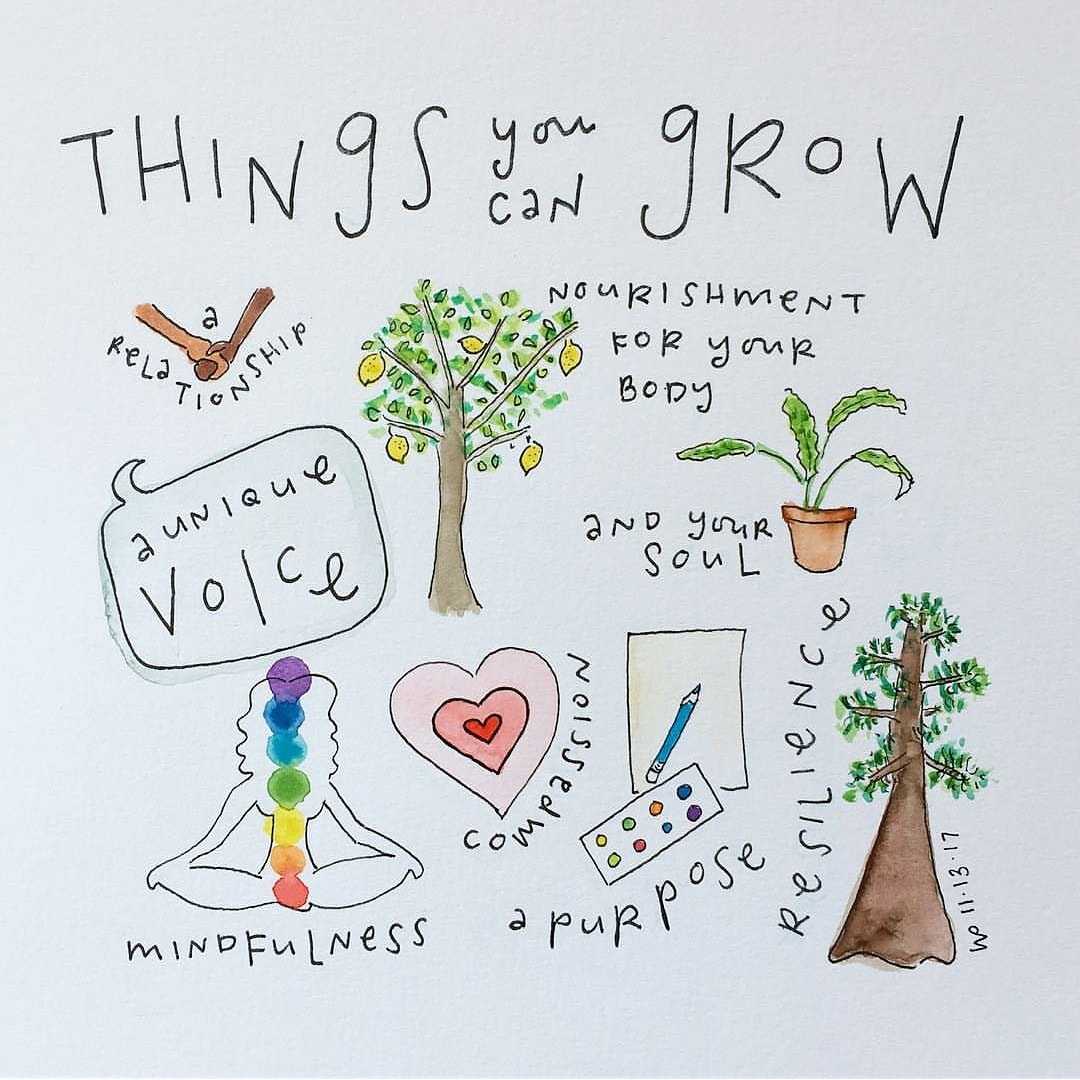 THINgS you can gROW
a
RELaTIONSHIP
NOURISHmENT
FOR youR
BODy
a uNIQue
VOIce
aND youR
SOuL
mINDFuLNess
compassioN
a puRpose
ResILIeNce
wp 11.13.17